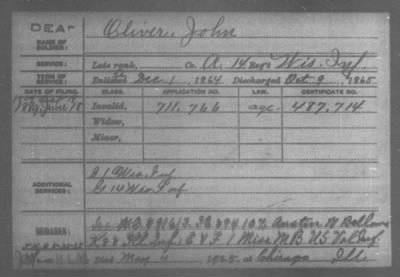 DEAF
Oliver, John
NAME OF SOLDIER:
SERVICE: Late rank, Co. A, 14 Reg't Wis. Inf.
TERM OF SERVICE: Enlisted Dec 1, 1864 Discharged Oct 9, 1865
DATE OF FILING. CLASS. APPLICATION NO. LAW. CERTIFICATE NO.
1889, June 18 Invalid, 711,766 age. 487,714
Widow,
Minor,
ADDITIONAL SERVICES: A 1 Wis. Inf
G 14 Wis. Inf
REMARKS: Austin W Bellows
K 98 Ill. Inf; E & F 1 Miss. M B US Vol Inf.
Died May 4 1925 at Chicago Ill